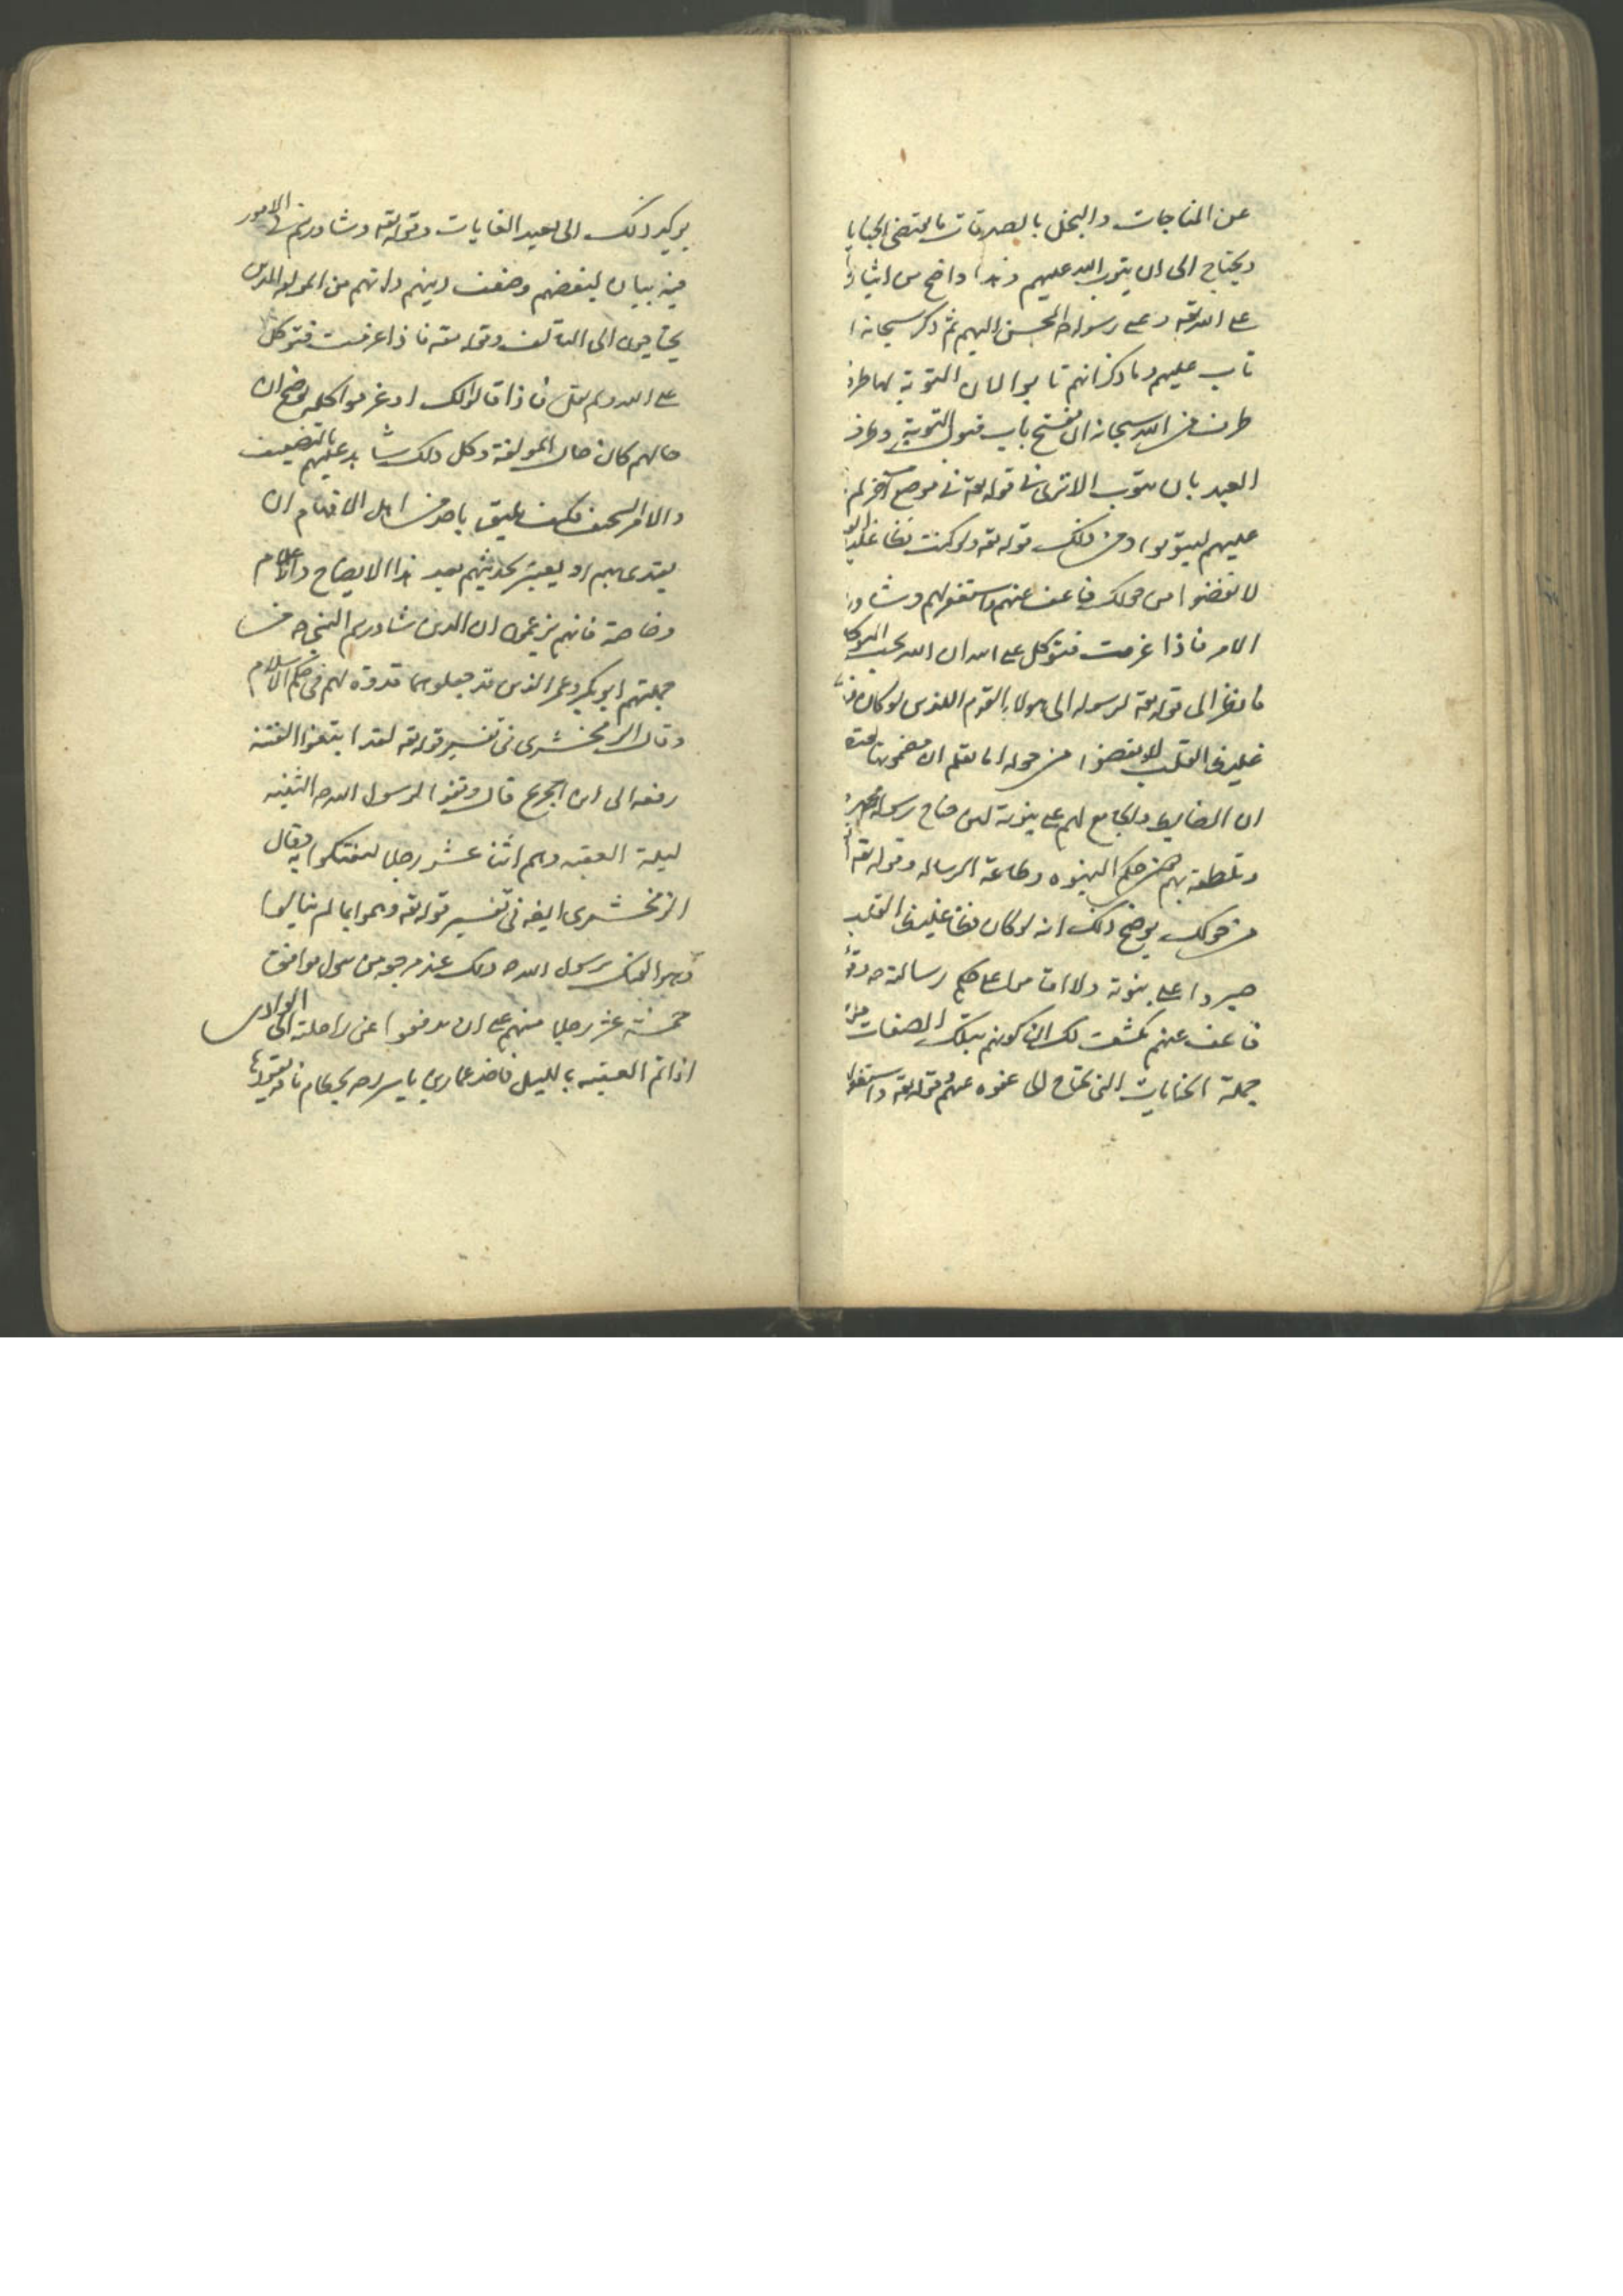 عن المناجات والبخل بالصدقات ما يقتضى الجنايا
ويحتاج الى ان يتوب الله عليهم وهذا واضح من ايثار
على الله تعه وعلى رسوله المحسن اليهم ثم ذكر سبحانه ا
تاب عليهم وما ذكر انهم تابوا لان التوبة لها طرف
طرف من الله سبحانه ان يفتح باب قبول التوبة وطرف
العبد بان يتوب الا ترى فى قوله تعه فى موضع آخر ثم
عليهم ليتوبوا ومن ذلك قوله تعه ولو كنت فظا غليظ
لانفضوا من حولك فاعف عنهم واستغفر لهم وشاور
الامر فاذا عزمت فتوكل على الله ان الله يحب المتوكل
فانظر الى قوله تعه لرسوله الى هولاء القوم الذين لو كان فظا
غليظ القلب لانفضوا من حوله اما تعلم ان مضمون
ان الضابط والجامع لهم على نبوته لين جناح رسوله
وتلطفه بهم من حكم النبوه وطاعة الرساله وقوله تعه
من حولك يوضح ذلك انه لو كان فظا غليظ القلب
صبروا على نبوته ولا اقاموا على حكم رسالته
فاعف عنهم يكشف لك ان كونهم بتلك الصفات من
جملة الجنايات التى تحتاج الى عفوه عنهم وقوله تعه واستغفر
يوكد ذلك الى بعيد الغايات وقوله تعه وشاورهم فى الامور
فيه بيان لبغضهم وضعف دينهم وانهم من المولفه الذين
يحتاجون الى التالف وقوله تعه فاذا عزمت فتوكل
على الله ولم يقل فاذا قالوا لك او عزموا كلهم يوضح ان
حالهم كان حال المولفة وكل ذلك شاهد عليهم بالتضعيف
والامر السخيف فكيف يليق باحد من اهل الافهام ان
يقتدى بهم او يعتبر بحديثهم بعد هذا الايضاح والاعلام
وخاصة فانهم يزعمون ان الذين شاورهم النبى ص من
جملتهم ابو بكر وعمر الذين قد جعلوهما قدوة لهم فى حكم الاسلام
وقال الزمخشرى فى تفسير قوله تعه لقد ابتغوا الفتنه
رفعه الى ابن جريح قال وقفوا لرسول الله ص الثنيه
ليلة العقبه وهم اثنا عشر رجلا ليفتكوا به وقال
الزمخشرى ايضه فى تفسير قوله تعه وهموا بما لم ينالوا
وهو الفتك برسول الله ص وذلك عند مرجعه من تبوك توافق
خمسة عشر رجلا منهم على ان يدفعوا عن راحلته الى الوادى
اذا تم العقبه بالليل فاخذ عمار بن ياسر ره بخطام ناقته يقودها